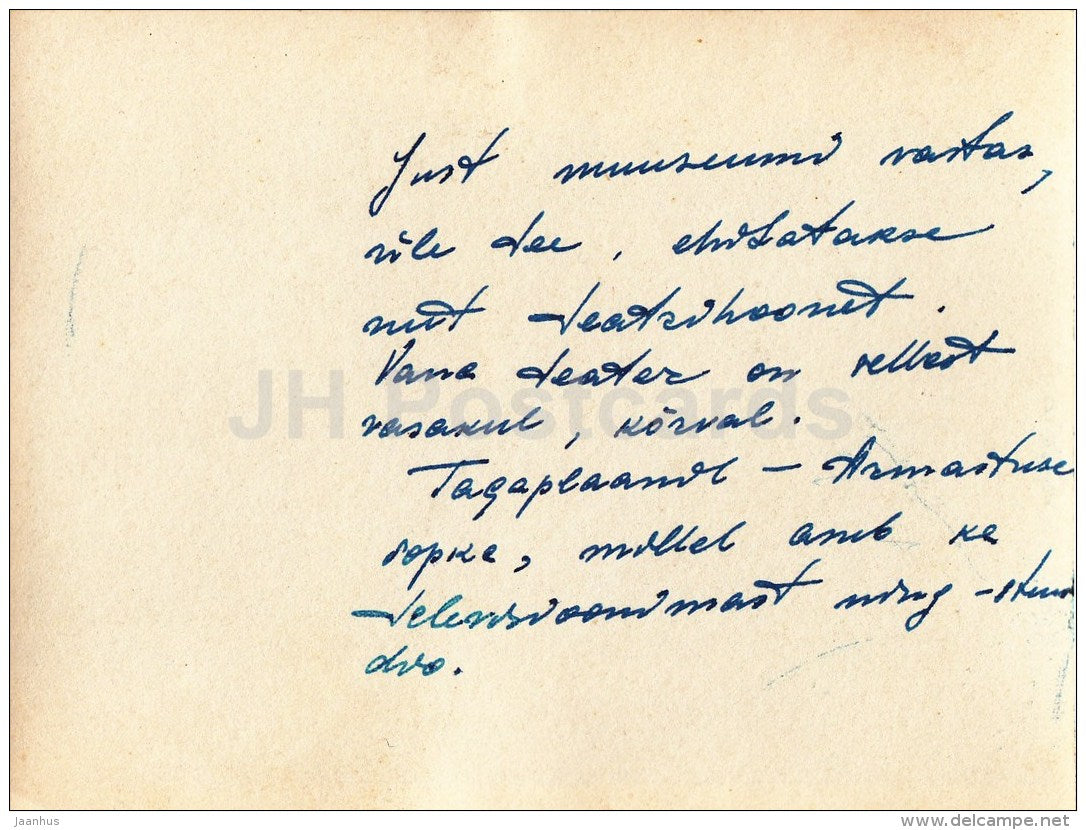 Just muuseumi vastas,
üle tee, ehitatakse
uut teatrihoonet.
Vana teater on sellest
vasakul, kõrval.
Tagaplaanil – Armastuse
sopka, millel asub ka
televisioonimast ning –stuu
dio.
JH Postcards
Jaanhus
www.delcampe.net